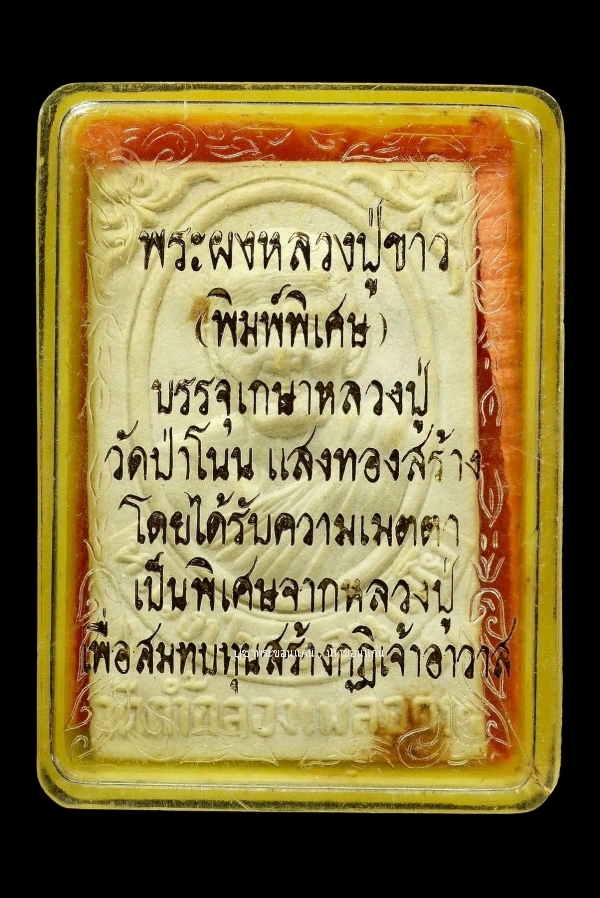 พระผงหลวงปู่ขาว
(พิมพ์พิเศษ)
บรรจุเกษาหลวงปู่
วัดป่าโนนแสงทองสร้าง
โดยได้รับความเมตตา
เป็นพิเศษจากหลวงปู่
เพื่อสมทบทุนสร้างกุฏิเจ้าอาวาส
วัดถ้ำกลองเพล